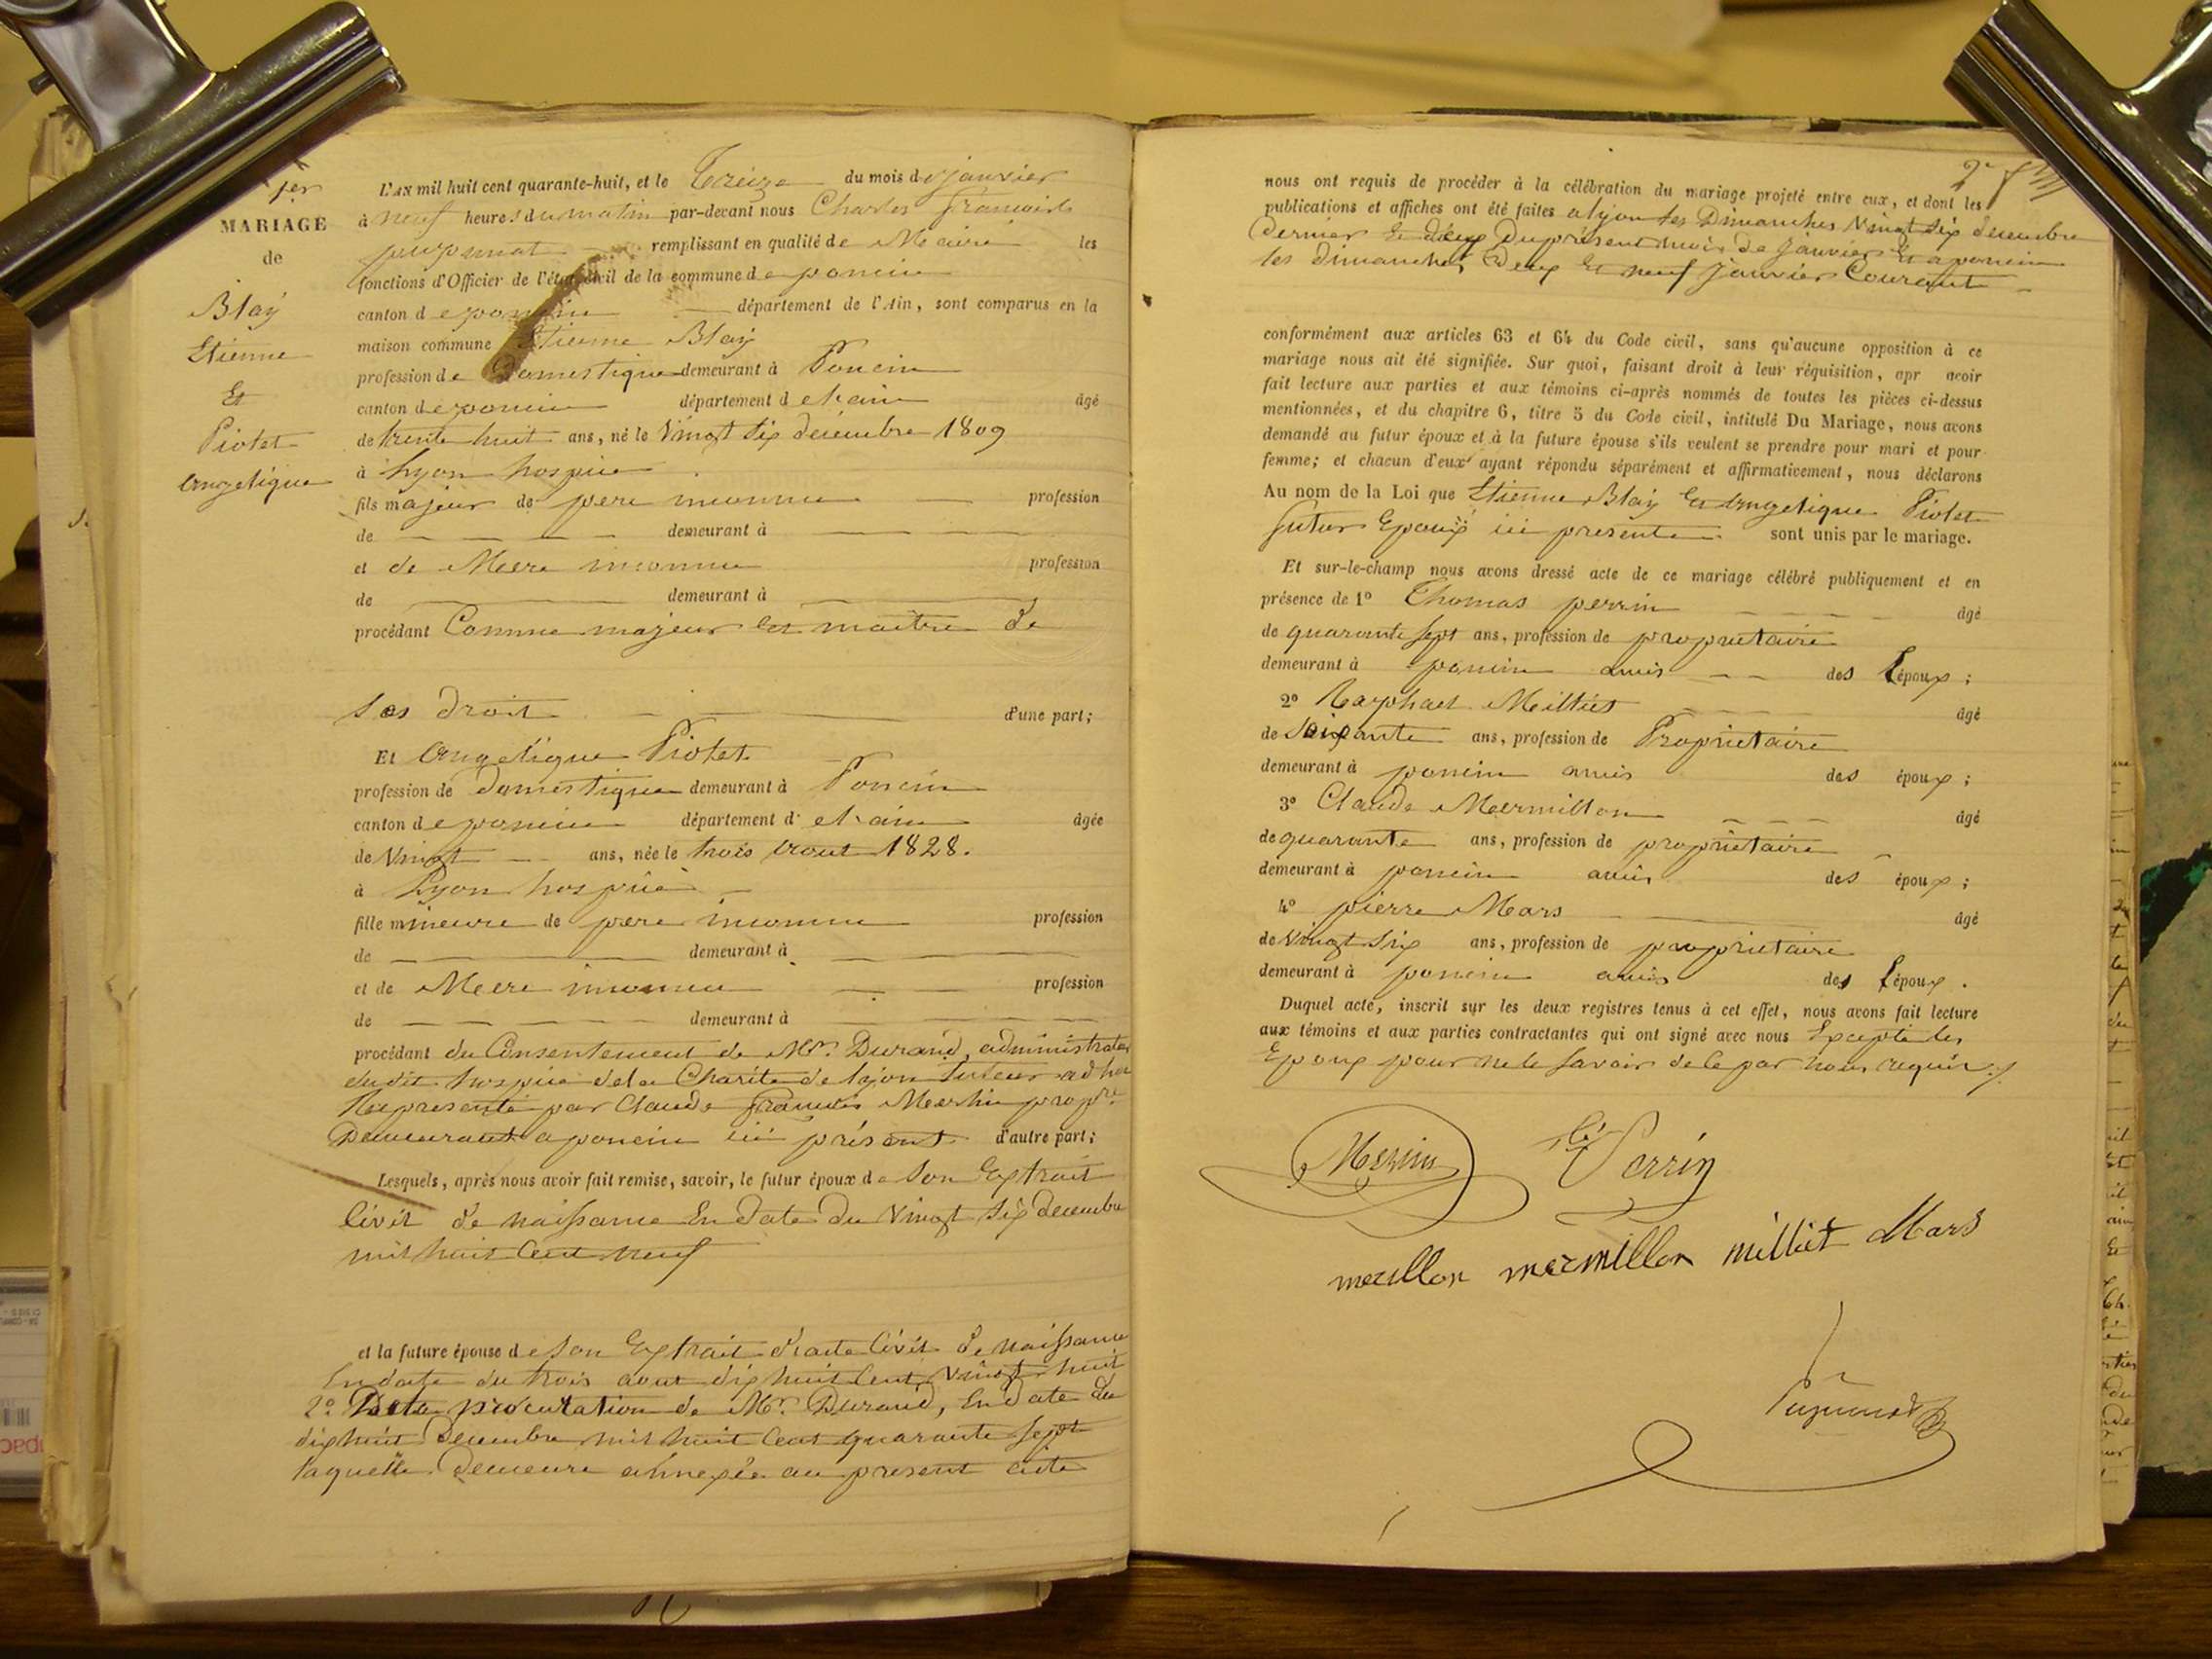 1er
MARIAGE
de
Blay
Etienne
Et
Piolet
Angelique
L'AN mil huit cent quarante-huit, et le Treize du mois de janvier
à neuf heures du matin par-devant nous Charles françois
remplissant en qualité de Maire les
fonctions d'Officier de l'état civil de la commune de poncin
canton de poncin département de l'Ain, sont comparus en la
maison commune Etienne Blay
profession de Domestique demeurant à Poncin
canton de poncin département de l'ain âgé
de trente huit ans, né le Vingt Six décembre 1809
à Lyon hospice
fils majeur de pere inconnu profession
de demeurant à
et de Meere inconnue profession
de demeurant à
procédant Comme majeur et maitre de
ses droit d'une part;
Et Angelique Piolet
profession de Domestique demeurant à Poncin
canton de poncin département de l'ain âgée
de Vingt ans, née le trois Aout 1828.
à Lyon hospice
fille mineure de pere inconnu profession
de demeurant à
et de Meere inconnue profession
de demeurant à
procédant du Consentement de Mr. Durand, administrateur
dudit hospice de la Charité de lyon tuteur ad hoc
Représenté par Claude François propre
Demeurant a poncin ici présent d'autre part;
Lesquels, après nous avoir fait remise, savoir, le futur époux de son Extrait
Civil de naissance En date du Vingt Six decembre
mil huit Cent neuf
et la future épouse de son Extrait d'acte Civil de naissance
En date du trois aout dix huit Cent Vingt huit
2º procuration de Mr. Durand, En date du
dix huit Decembre mil huit Cent quarante sept
laquelle Demeure annexée au present acte
nous ont requis de procéder à la célébration du mariage projeté entre eux, et dont les
publications et affiches ont été faites a lyon les Dimanches Vingt Six decembre
Dernier Et deux Du présent mois De janvier Et a poncin
les dimanches Deux Et neuf Janvier Courant
conformément aux articles 63 et 64 du Code civil, sans qu'aucune opposition à ce
mariage nous ait été signifiée. Sur quoi, faisant droit à leur réquisition, apr avoir
fait lecture aux parties et aux témoins ci-après nommés de toutes les pièces ci-dessus
mentionnées, et du chapitre 6, titre 5 du Code civil, intitulé Du Mariage, nous avons
demandé au futur époux et à la future épouse s'ils veulent se prendre pour mari et pour
femme; et chacun d'eux ayant répondu séparément et affirmativement, nous déclarons
Au nom de la Loi que Etienne Blay Et Angelique Piolet
futur Epoux ici present sont unis par le mariage.
Et sur-le-champ nous avons dressé acte de ce mariage célébré publiquement et en
présence de 1º Thomas perrin âgé
de quarante sept ans, profession de proprietaire
demeurant à poncin amis des époux ;
2º Raphael Milliet âgé
de Soixante ans, profession de Proprietaire
demeurant à poncin amis des époux ;
3º Claude Mermillon âgé
de quarante ans, profession de proprietaire
demeurant à poncin amis des époux ;
4º pierre Mars âgé
de Vingt Six ans, profession de proprietaire
demeurant à poncin amis des époux .
Duquel acte, inscrit sur les deux registres tenus à cet effet, nous avons fait lecture
aux témoins et aux parties contractantes qui ont signé avec nous Excepté les
Epoux pour ne le savoir de ce par nous requis ./.
Perrin
mermillon milliet Mars